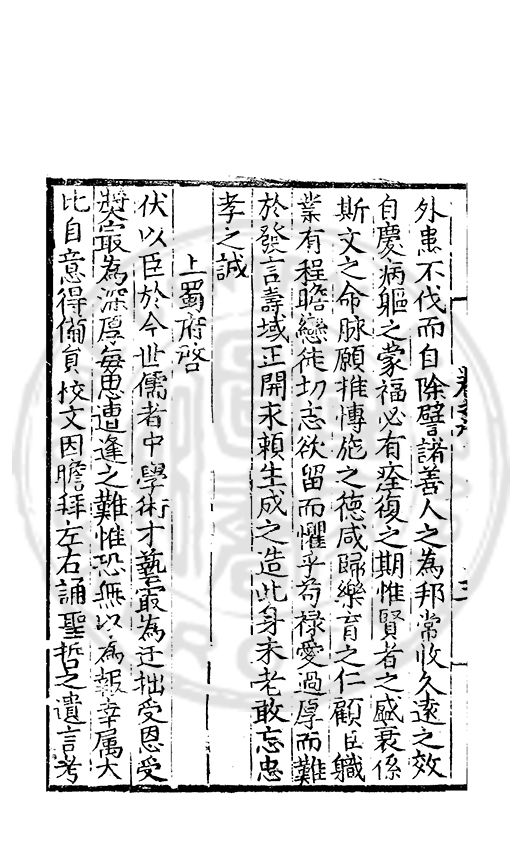 外患不伐而自除譬諸善人之為邦常收久遠之效
自慶病軀之蒙福必有痊復之期惟賢者之盛衰係
斯文之命脉願推愽施之德咸歸樂育之仁顧臣軄
業有程瞻戀徒切志欲留而懼乎苟禄愛過厚而難
於發言壽域正開永賴生成之造此身未老敢忘忠
孝之誠
上蜀府啓
伏以臣於今世儒者中學術才藝㝡為迂拙受恩受
奬㝡為深厚每思遭逢之難惟恐無以為報幸属大
比自意得備員校文因瞻拜左右誦聖哲之遺言考